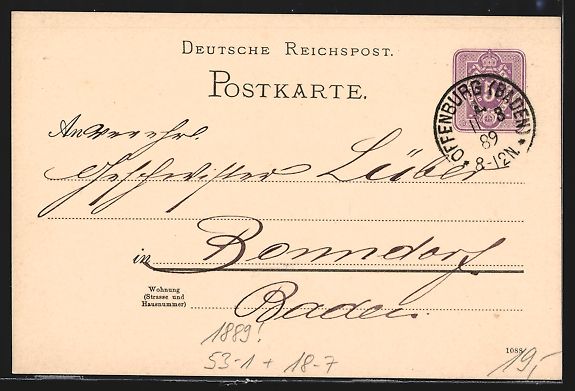 DEUTSCHE REICHSPOST.
POSTKARTE.
OFFENBURG (BADEN)
89
8-12N.
An
Geschwister Lüber
in Bonndorf
Wohnung
(Strasse und
Hausnummer)
Baden.
1889!
53-1 + 18-7
1088
19,-